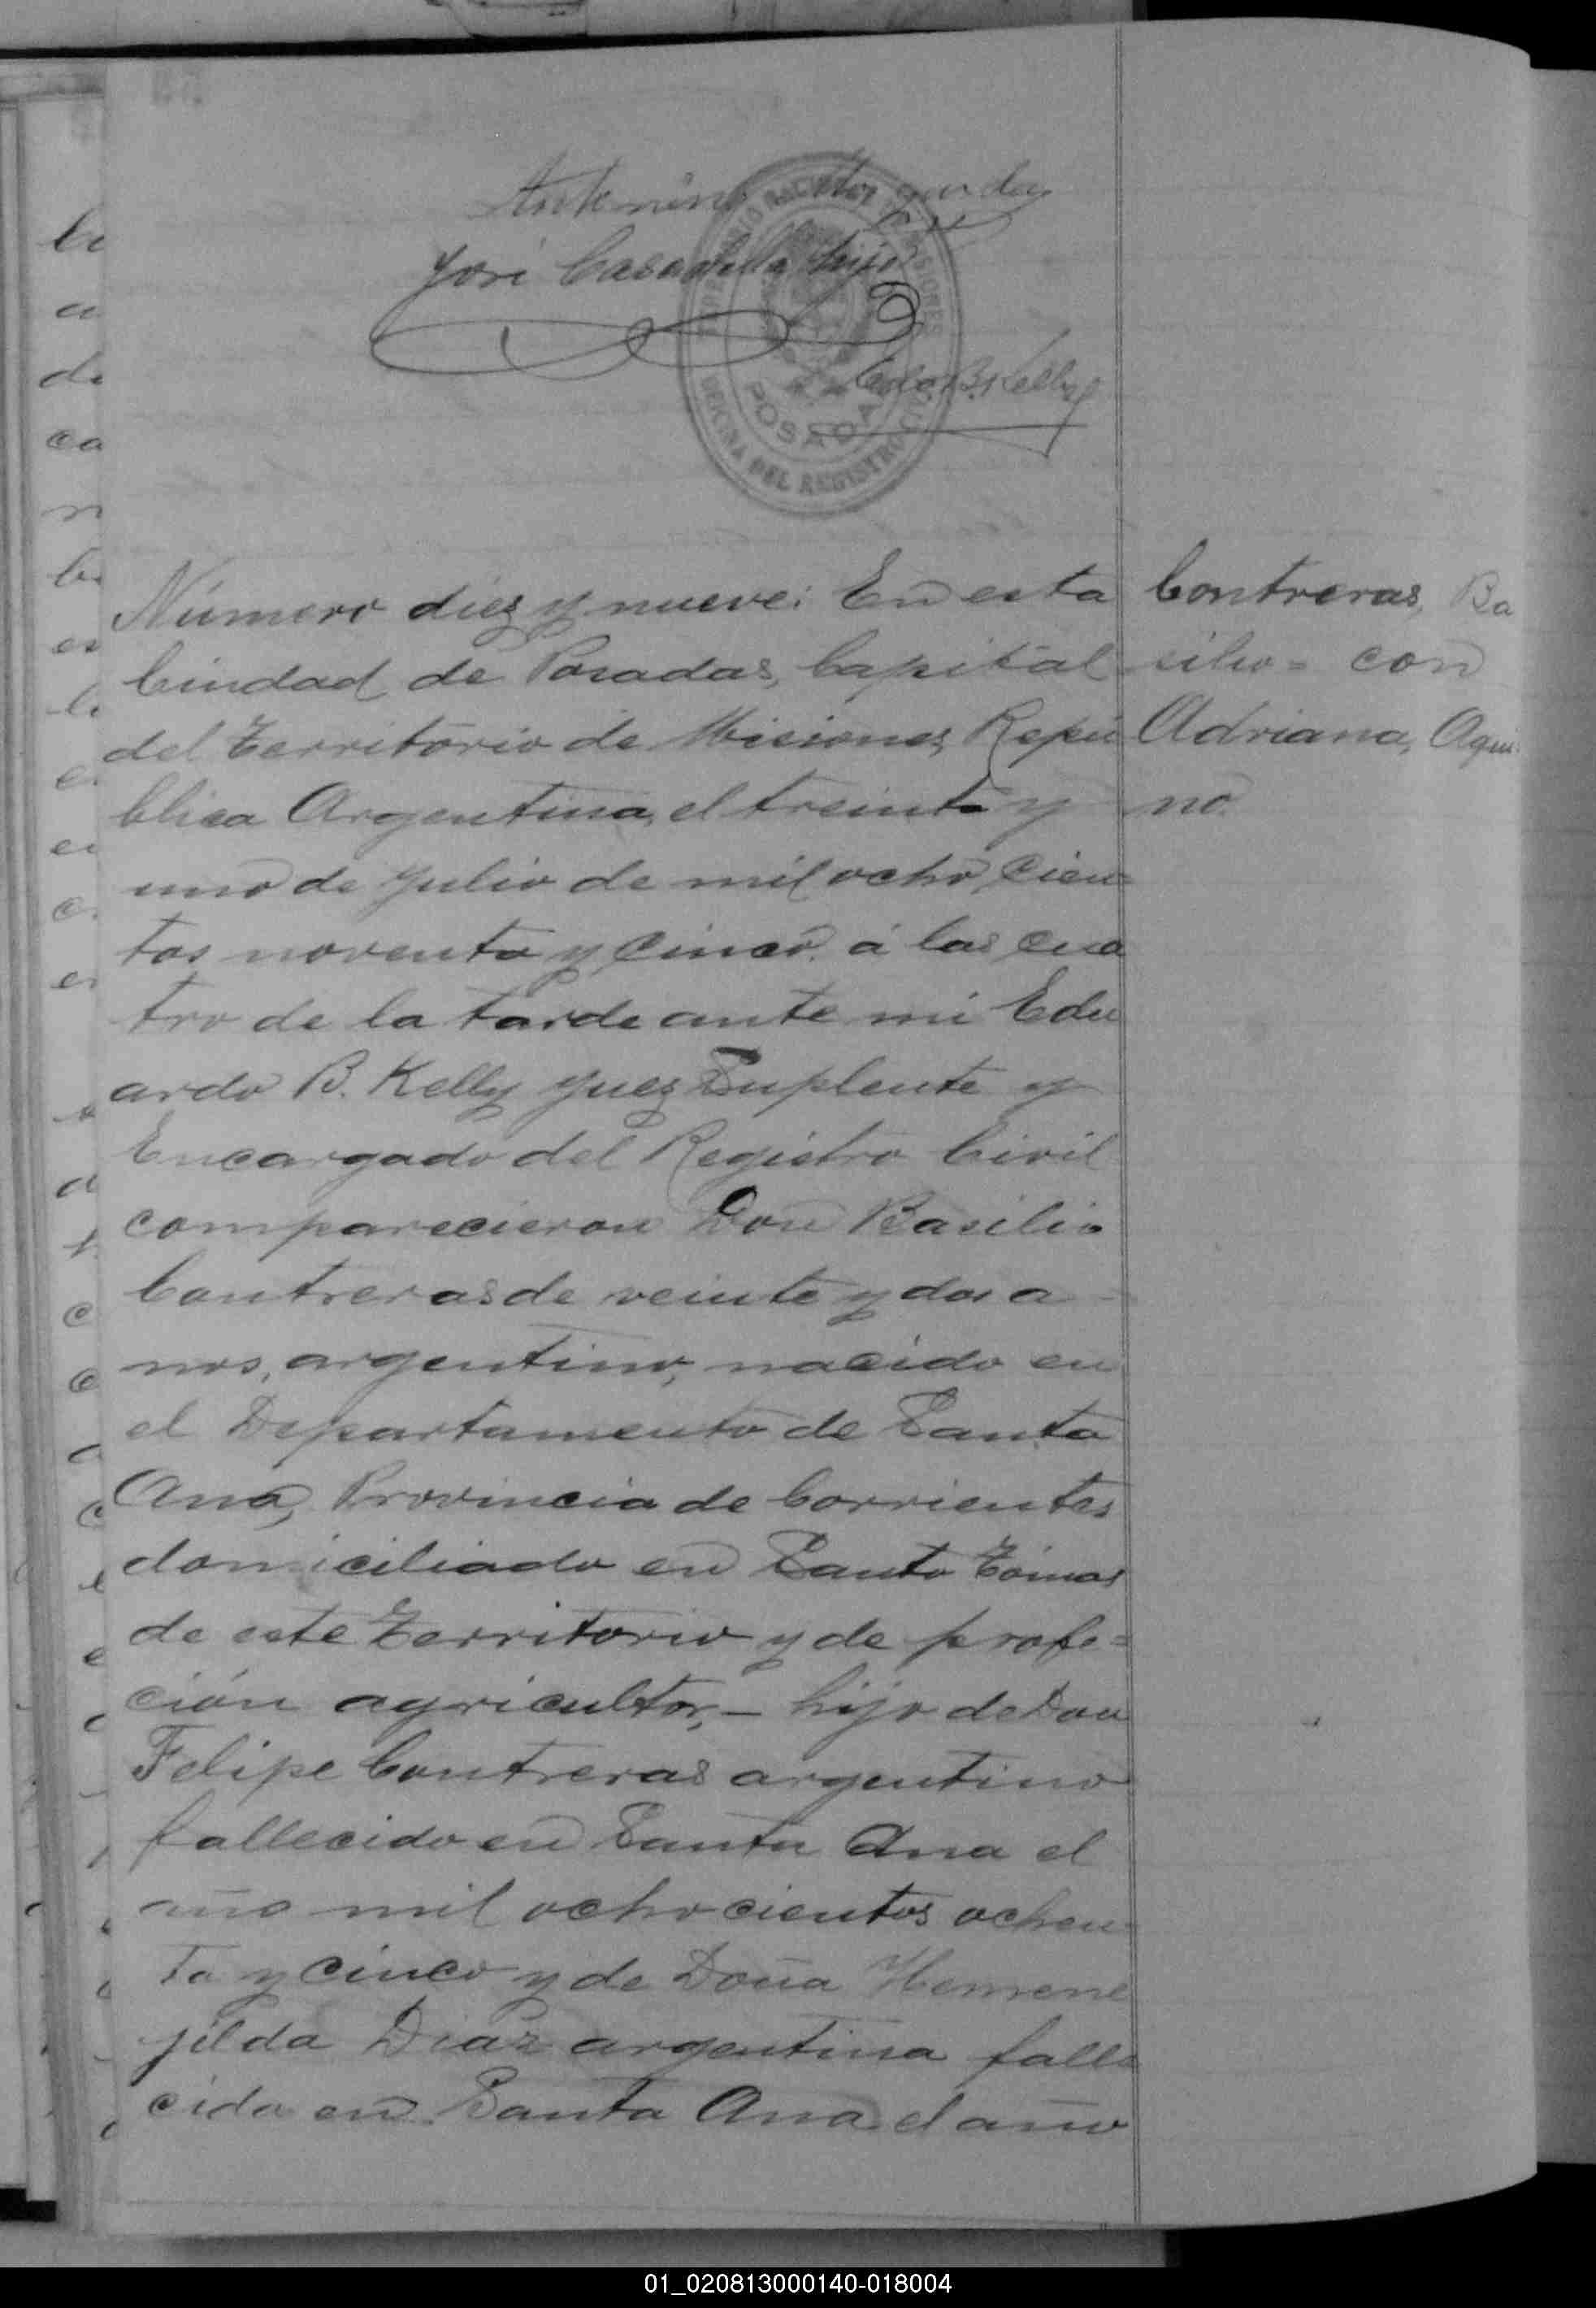 José Casadella hijo
B. Kelly
POSADAS
OFICINA DEL REGISTRO CIVIL
Número diez y nueve: En esta
Ciudad de Posadas, Capital
del Territorio de Misiones, Repú
blica Argentina, el treinta y
uno de Julio de mil ocho cien=
tos noventa y cinco á las cua
tro de la tarde ante mi Edu
ardo B. Kelly Juez Suplente y
Encargado del Registro Civil
comparecieron Don Basilio
Contreras de veinte y dos a-
nos, argentino, nacido en
el Departamento de Santa
Ana, Provincia de Corrientes
domiciliado en Santo Tómas
de este Territorio y de profe=
ción agricultor,- hijo de Don
Felipe Contreras argentino
fallecido en Santa Ana el
año mil ochocientos ochen-
ta y cinco y de Doña Hemene
jilda Diaz argentina falle
cida en Santa Ana el año
Contreras, Ba
silio= con
Adriana, Aqui
no.
01_020813000140-018004